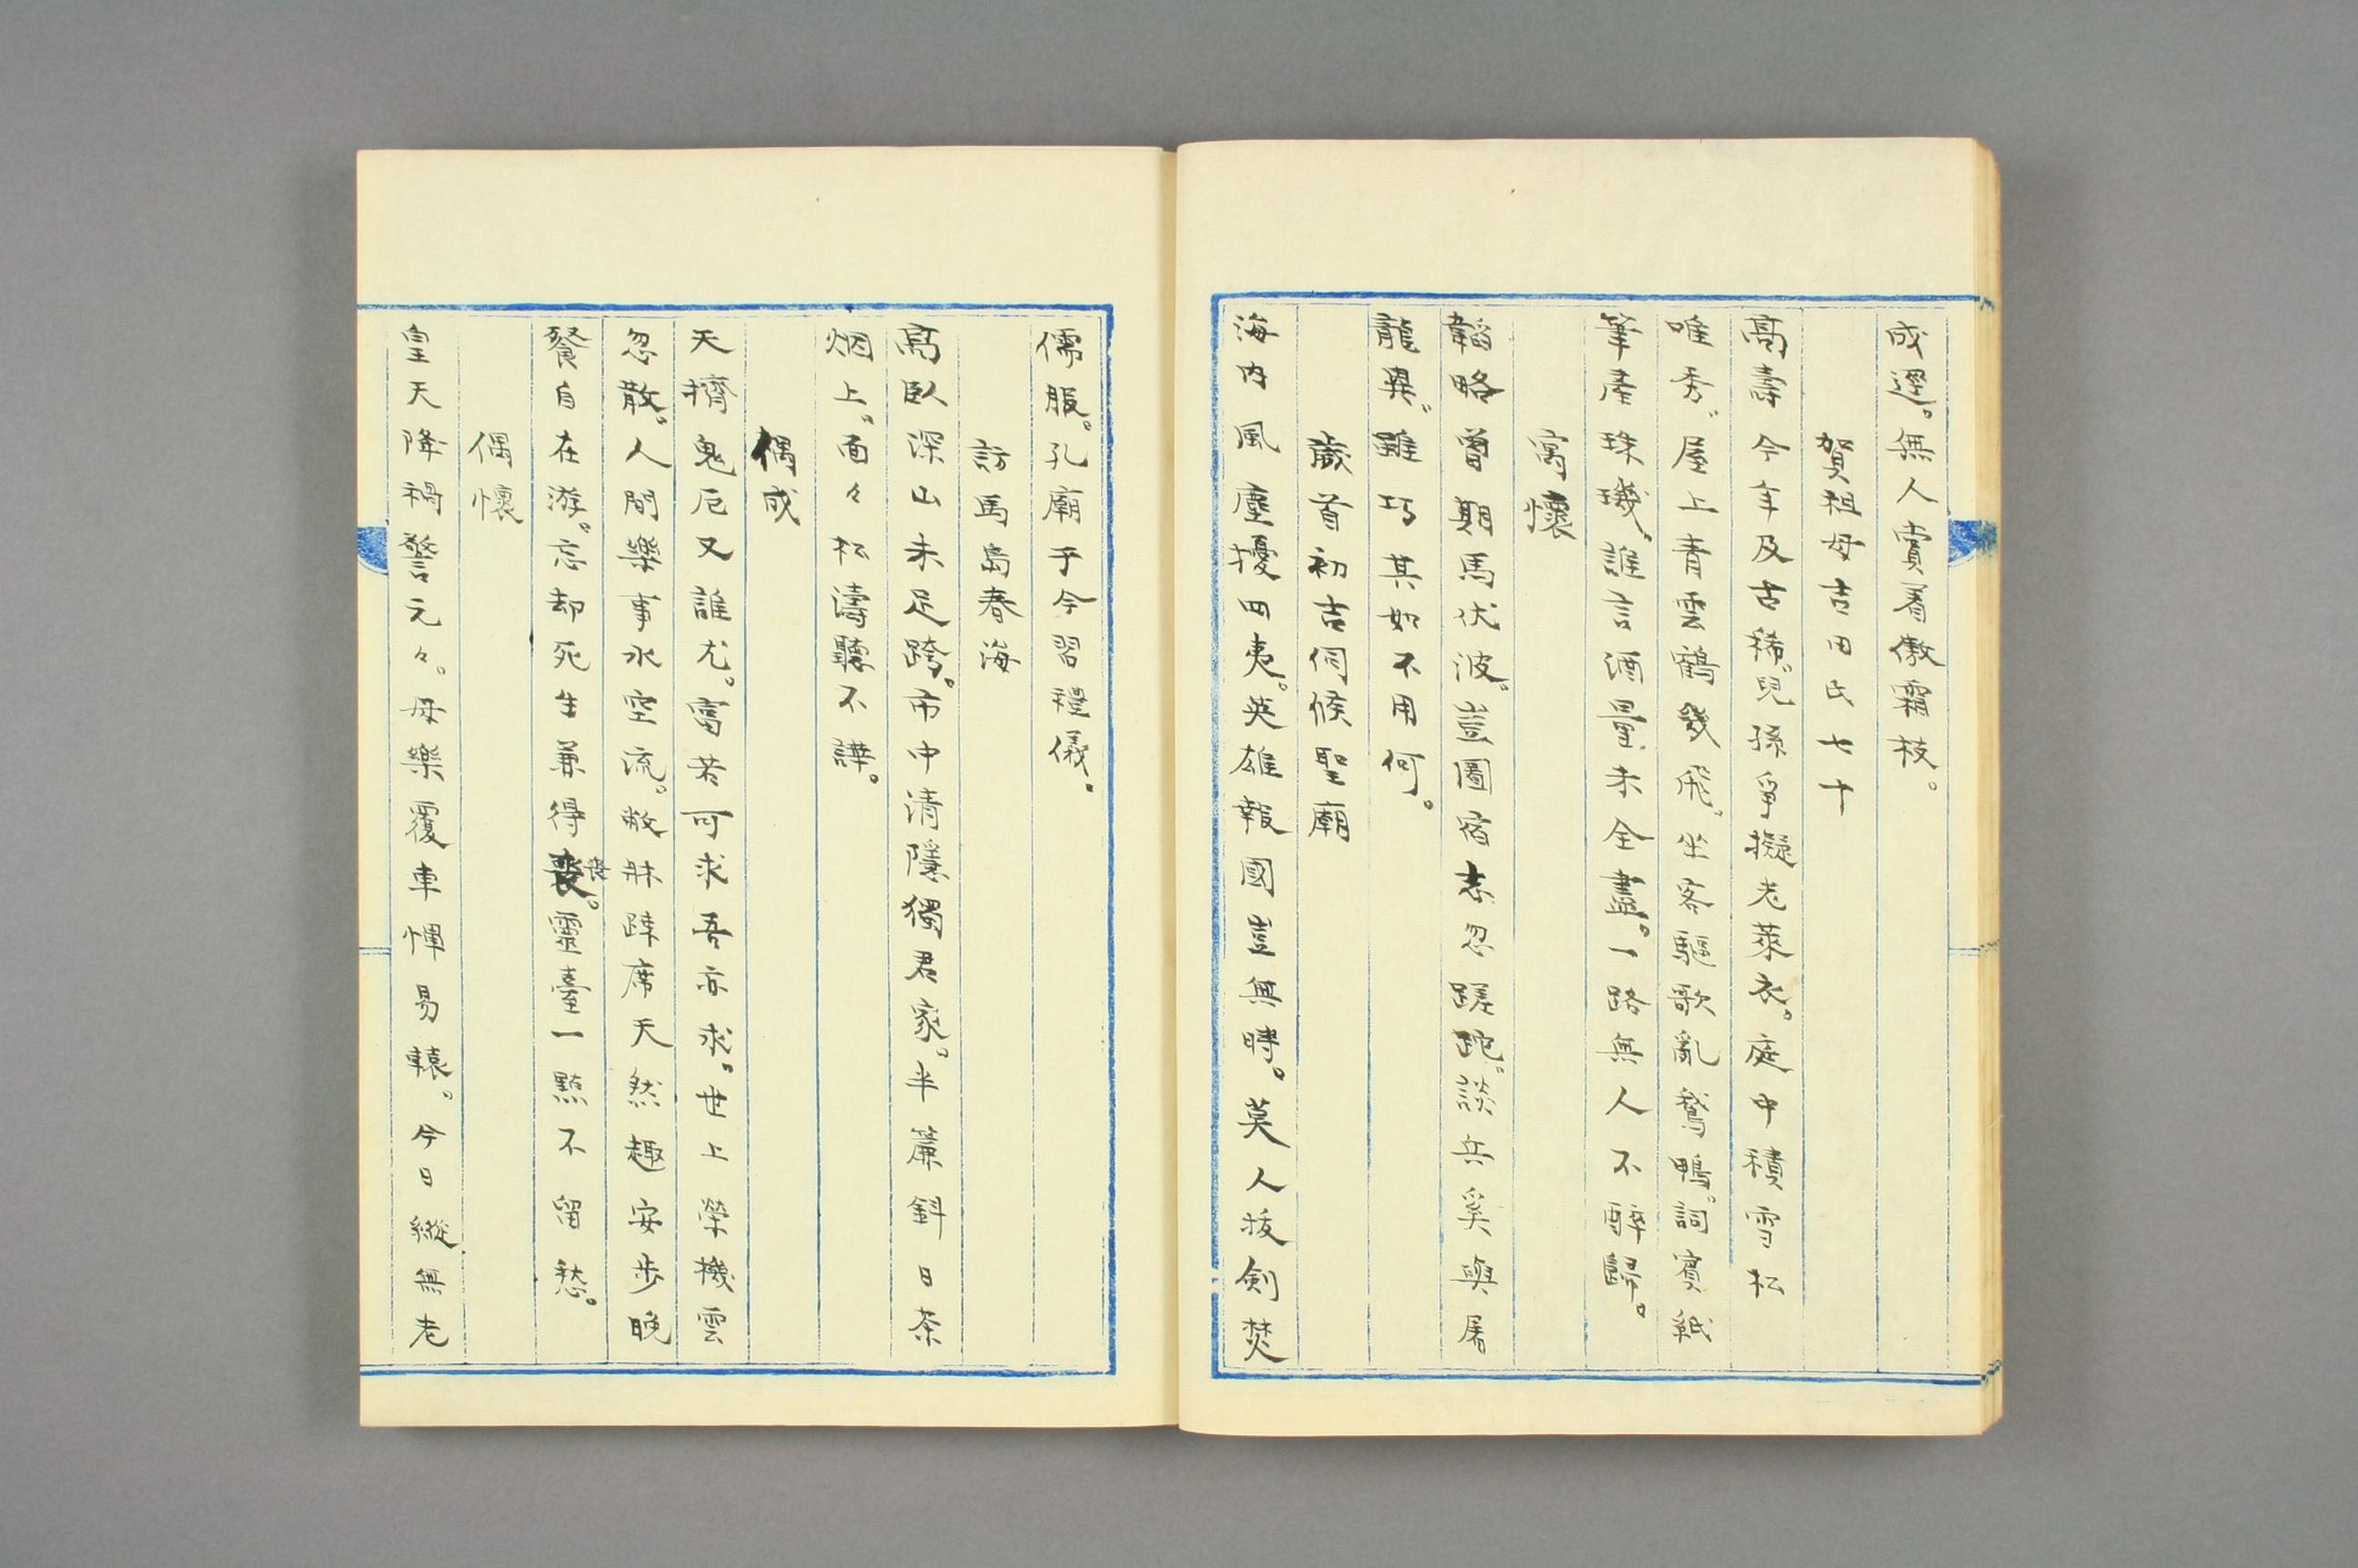 成逕。無人賞看傲霜枝。
賀祖母吉田氏七十
高壽今年及古稀。兒孫爭擬老萊衣。庭中積雪松
唯秀。屋上青雲鶴幾飛。坐客驅歌亂鵞鴨。詞賓紙
筆產珠璣。誰言酒量未全盡。一路無人不醉歸。
寓懷
韜略曾期馬伏波。豈圖宿志忍蹉跎。談兵奚與屠
龍異。雖巧其如不用何。
歲首初吉伺候聖廟
海内風塵擾四夷。英雄報國豈無時。莫人拔劍焚
儒服。孔廟于今習禮儀。
訪馬島春海
高臥深山未足誇。市中清隱獨君家。半簾斜日茶
烟上。面々松濤聽不譁。
偶成
天擠鬼厄又誰尤。富若可求吾亦求。世上榮機雲
忽散。人間樂事水空流。敝牀踈席天然趣安步晚
餐自在游。忘却死生兼得喪。靈臺一點不留愁。
偶懷
皇天降禍警元々。毋樂覆車憚易轅。今日縱無老